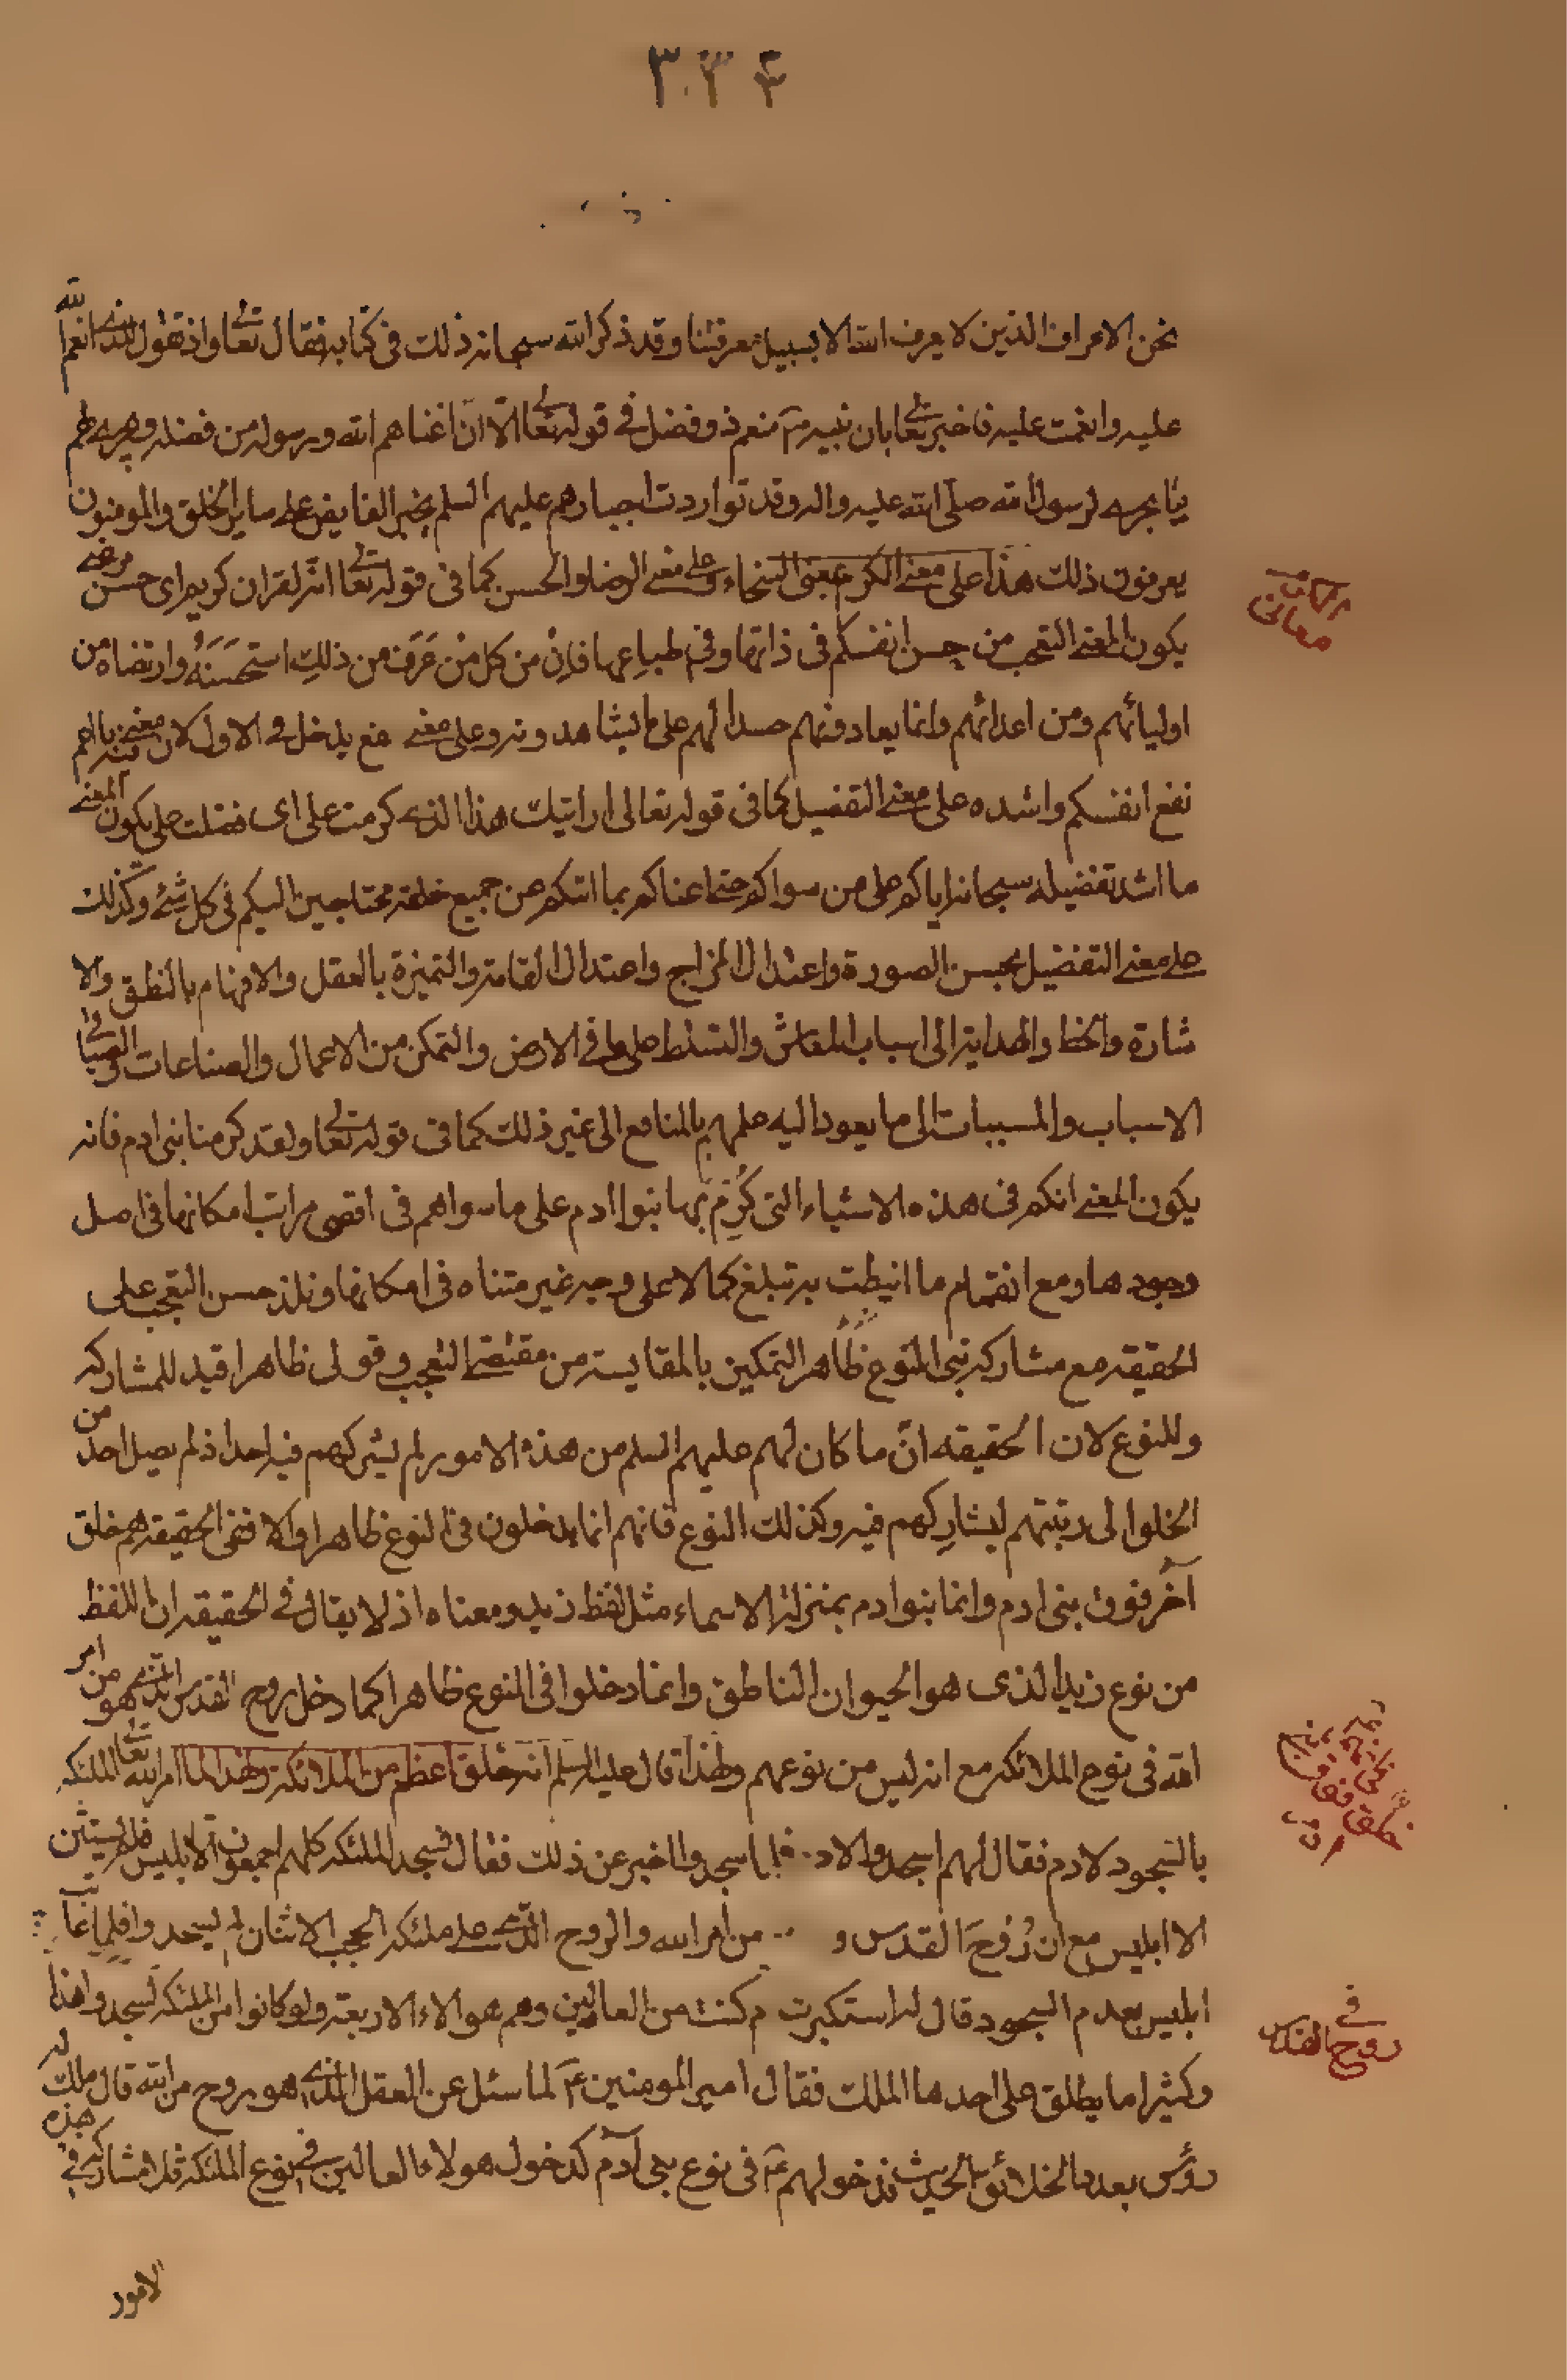 ٣٣٤
نحن الاعراف الذين لا يعرف الله الا بسبيل معرفتنا وقد ذكر الله سبحانه ذلك فى كتابه فقال تعالى واذ تقول للذى انعم الله
عليه وانعمت عليه فاخبر تعالى بان نبيه ص منعم ذو فضل فى قوله تعالى الا ان اغناهم الله ورسوله من فضله ويجرى لهم
ما يجرى لرسول الله صلى الله عليه واله وقد تواردت اخبارهم عليهم السلم بخبر الفايض على ساير الخلق والمومنون
يعرفون ذلك هذا على معنى الكرم بمعنى السخاء وعلى معنى الرضا والحسن كما فى قوله تعالى انه لقران كريم اى حسن مرضى
يكون المعنى التعجب من حسن انفسكم فى ذاتها وفى طباعها فان من كل من عَرَفَ من ذلك استحسَنَهُ وارتضاه من
اوليائهم ومن اعدائهم وانما يعادونهم حسدا لهم على ما يشاهدونه وعلى معنى نفع يدخل فى الاول لان معنى
نفع انفسكم واشده على معنى التفضيل كما فى قوله تعالى ارايتك هذا الذى كرمت على اى فضلت على يكون المعنى
ما اشد تفضيله سبحانه اياكم على من سواكم حتى اغناكم بما اتيكم عن جميع خلقه محتاجين اليكم فى كل شئ وكذلك
على معنى التفضيل بحسن الصورة واعتدال المزاج واعتدال القامة والتميزة بالعقل والافهام بالنطق والا
شارة والخط والهداية الى اسباب المعاش والتسلط على ما فى الارض والتمكن من الاعمال والصناعات
الاسباب والمسببات الى ما يعود اليه عليهم بالمنافع الى غير ذلك كما فى قوله تعالى ولقد كرمنا بنى ادم فانه
يكون المعنى انكم فى هذه الاشياء التى كُرِّمَ بها بنوا ادم على ما سواهم فى اقصى مراتب امكانها فى اصل
وجودها ومع انضمام ما انيطت به تبلغ كمالا على وجه غير متناه فى امكانها فلذ حسن التعجب على
الحقيقة مع مشاركة بنى النوع ظاهر التمكين بالمقايسة من مقتضى التعجب وقولى ظاهرا قيد للمشاركة
وللنوع لان الحقيقه انّ ما كان لهم عليهم السلم من هذه الامور لم يشركهم فيه احدا ذلم يصل احد من
الخلوا لى رتبتهم ليشاركهم فيه وكذلك النوع فانهم انما يدخلون فى النوع ظاهرا والا ففى الحقيقة هم خلق
آخر فوق بنى ادم وانما بنوا ادم بمنزلة الاسماء مثل لفظ زيد ومعناه اذ لا يقال فى الحقيقة ان اللفظ
من نوع زيد الذى هو الحيوان الناطق وانما دخلوا فى النوع ظاهرا كما دخل روح القدس الذى هو من امر
الله فى نوع الملائكة مع انه ليس من نوعهم ولهذا قال عليه السلم انه خلق اعظم من الملائكة ولهذا لما امر الله تعالى الملئكة
بالسجود لادم فقال لهم اسجدوا لاد فلما سجدوا اخبر عن ذلك فقال فسجد الملئكة كلهم اجمعون الا ابليس فلم يستثن
الا ابليس مع ان رُوحَ القدس و من امر الله والروح الذى على ملئكة الحجب الاثنان لم يسجدوا فلما
ابليس بعدم السجود قال له استكبرت م كنت من العالين وهم هؤلاء الاربعة ولو كانوا من الملئكة لسجدوا هذا
وكثيرا ما يطلق على احدها الملك فقال امير المومنين ع لما سئل عن العقل الذى هو روح من الله قال ملك له
رؤس بعدد الخلائق الحديث فدخولهم ع فى نوع بنى آدم كدخول هؤلاء العالين فى نوع الملئكة فلا مشاركة فى هذه
الامور
معانى
فى
روح القدس